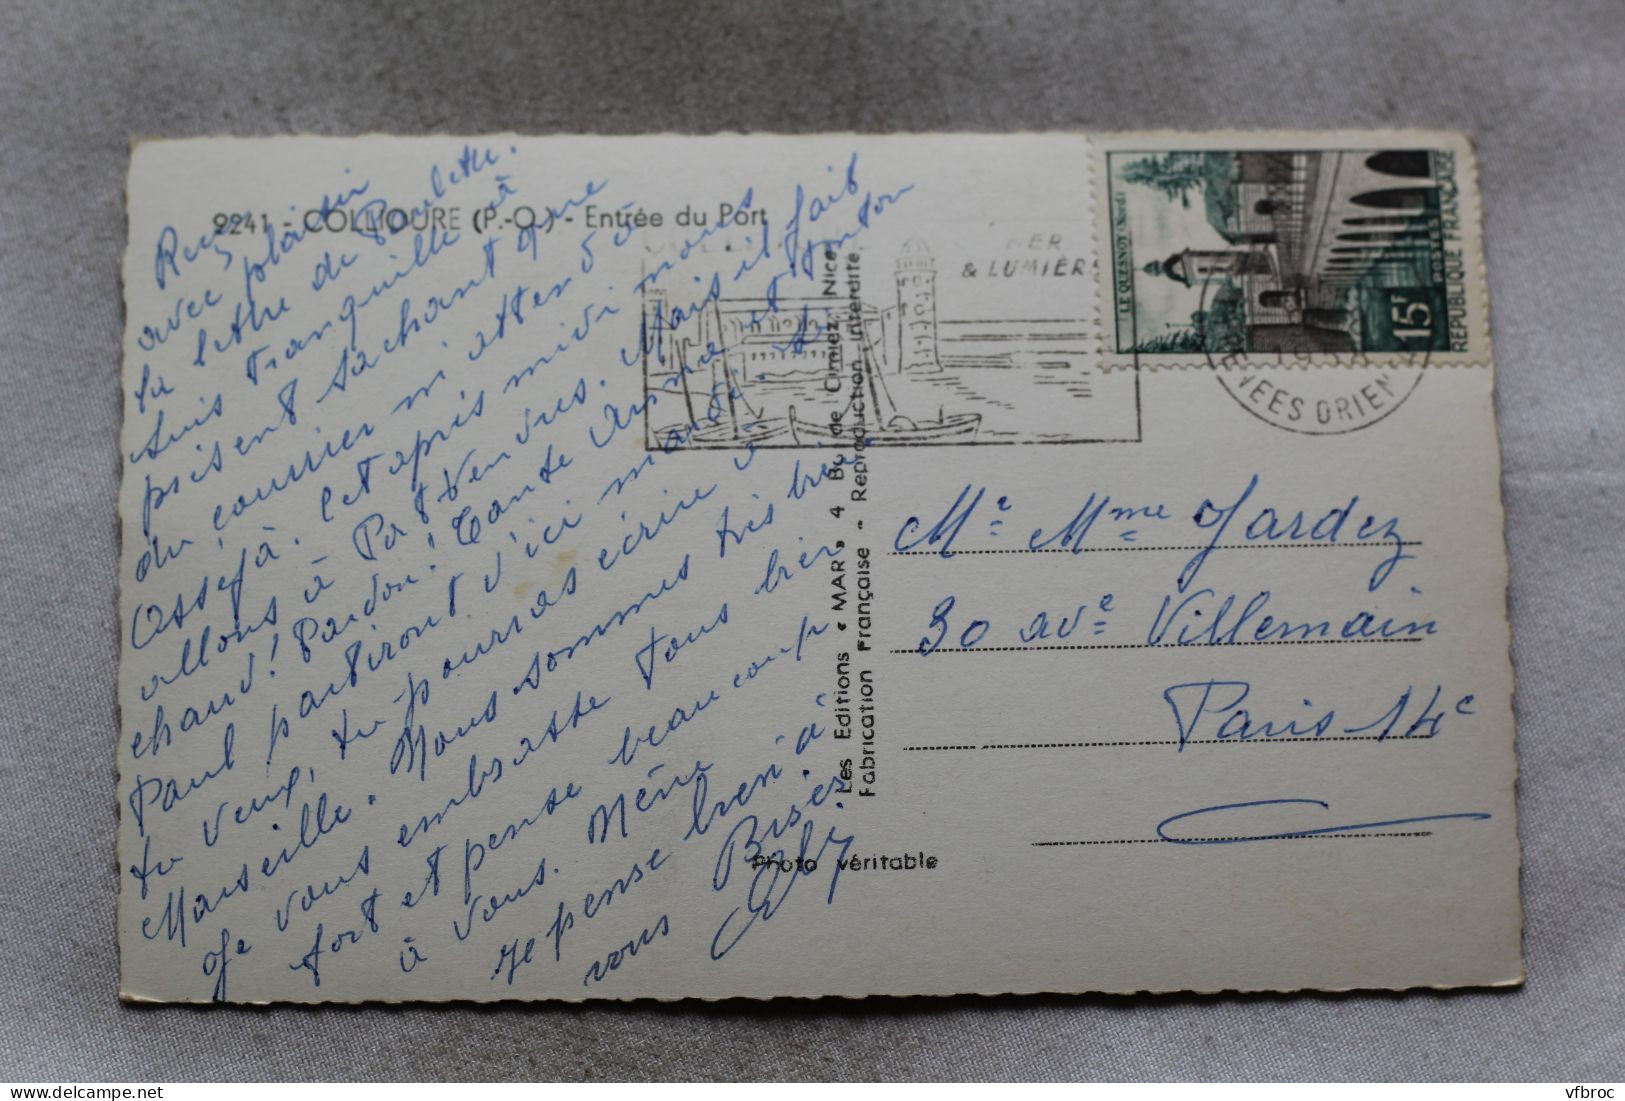 2241 - COLLIOURE (P.-O.) - Entrée du Port
Reçu
avec plaisir
ta lettre de Paulette.
Suis tranquille à
présent sachant que
du courrier m'attend à
Osséjà. Cet après midi nous
allons à Port Vendres. Mais il fait
chaud! Pardon! Tante Anna et tonton
Paul partiront d'ici mardi. Si
tu veux, tu pourras écrire à
Marseille. Nous sommes très bien.
Je vous embrasse tous bien
fort et pense beaucoup
à vous. Mémé
je pense bien à
vous Bises
MER
& LUMIÈR
LE QUESNOY (Nord)
15F
POSTES
REPUBLIQUE FRANÇAISE
ENEES ORIEN
Les Editions « MAR » 4 Bd de Cimiez, Nice
Fabrication Française - Reproduction interdite
Mr Mme Jardez
30 ave Villemain
Paris 14e
Photo véritable
vfbroc